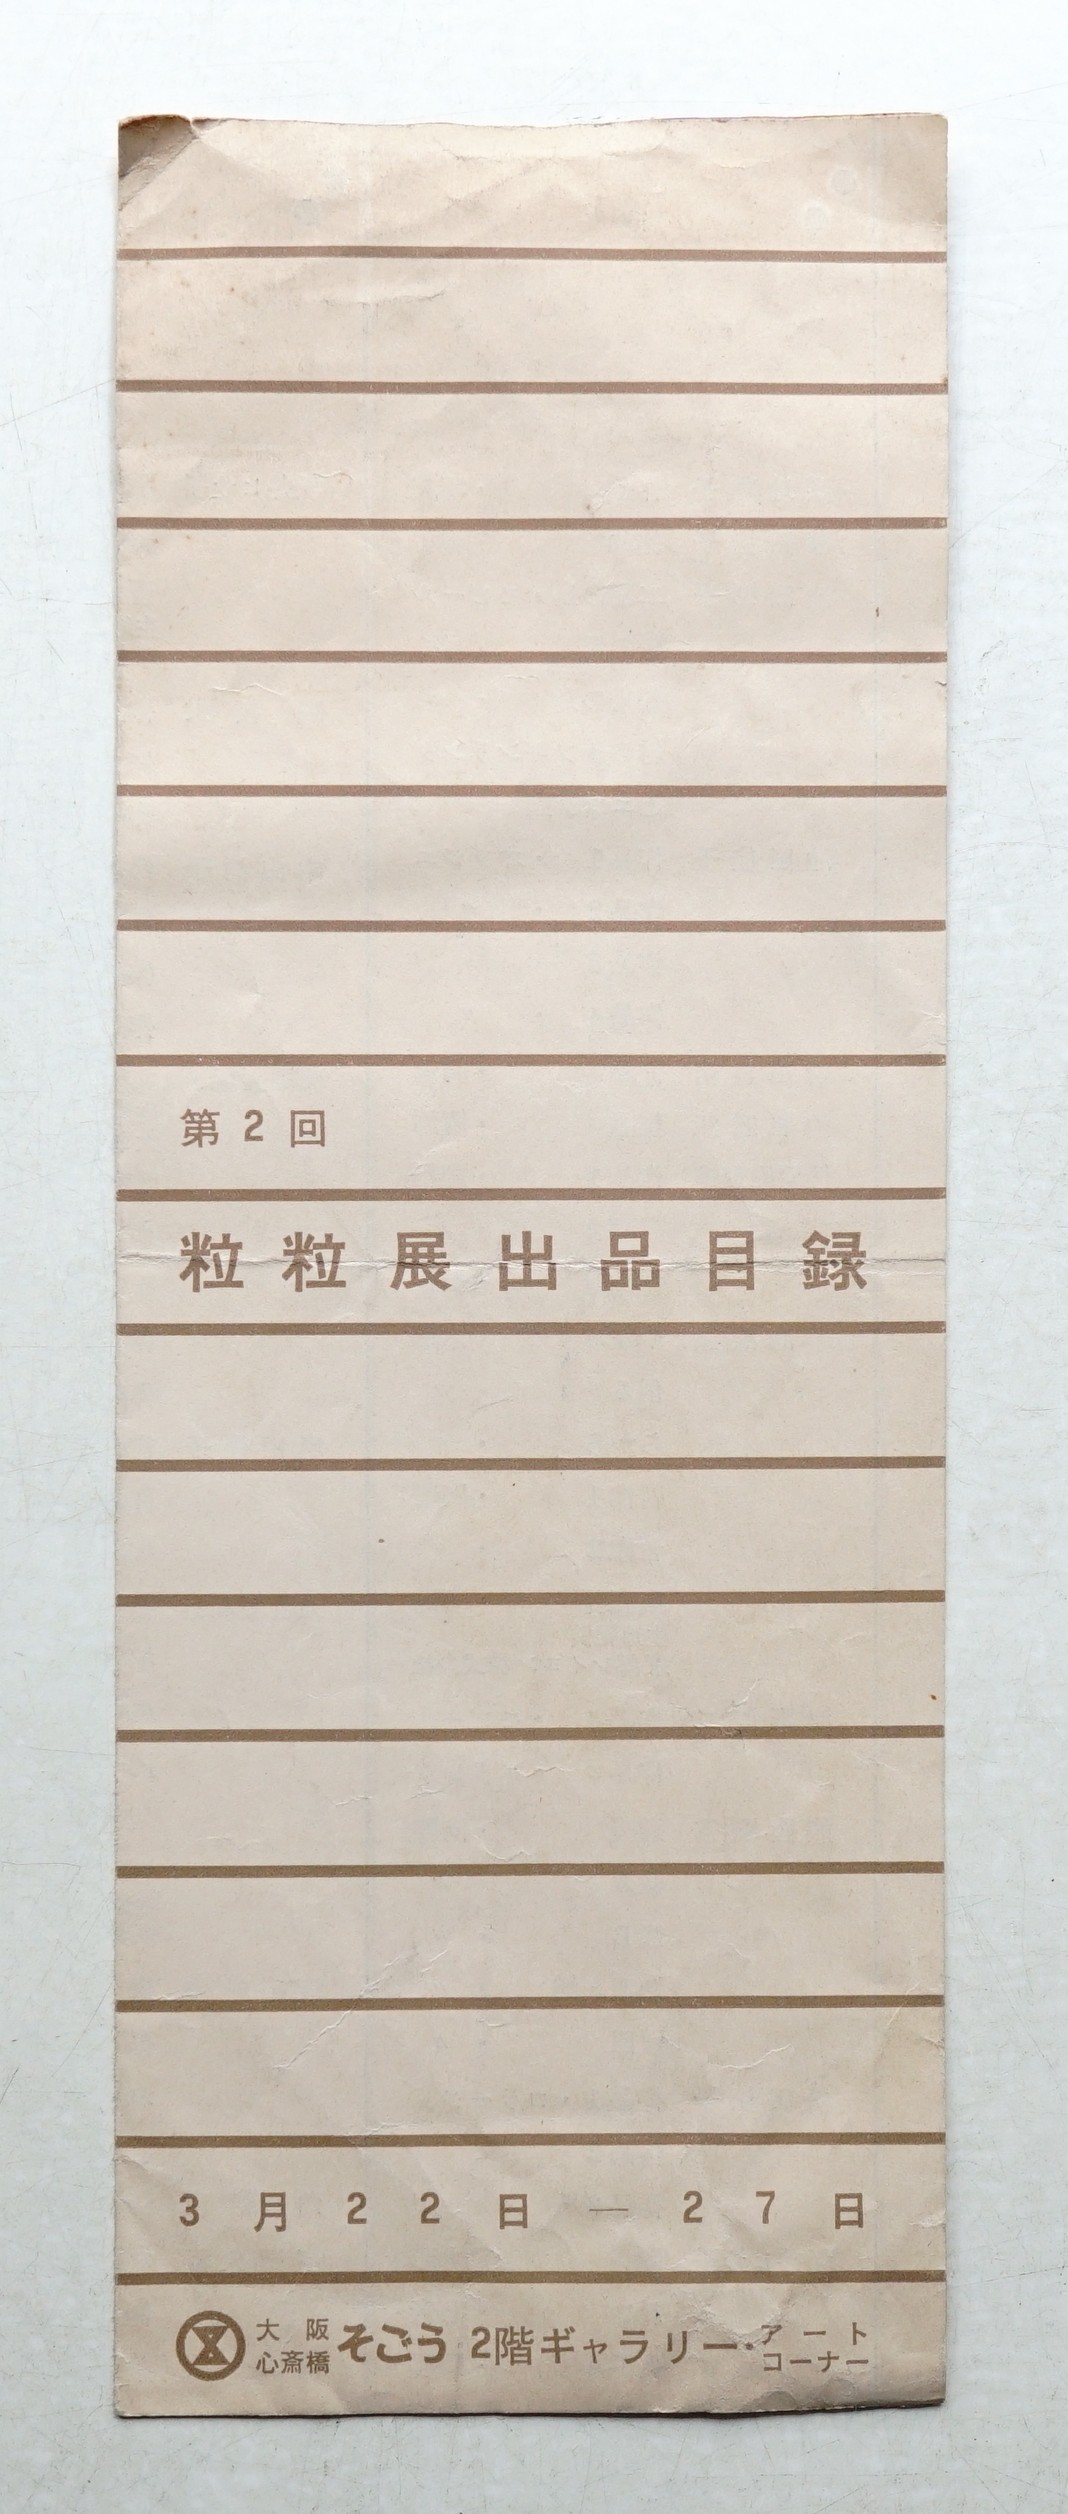 第2回
粒粒展出品目録
3月22日—27日
大阪心斎橋 そごう 2階ギャラリー・アートコーナー